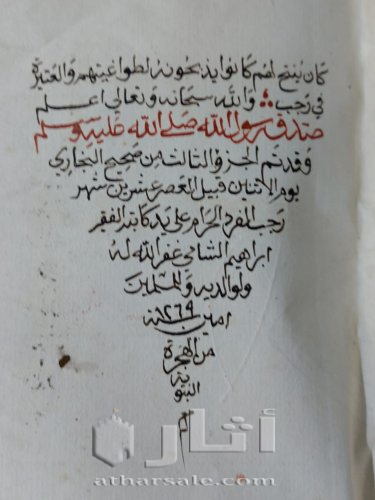 كان ينتج لهم كانوا يذبحونه لطواغيتهم والعتيرة
في رجب والله سبحانه وتعالى اعلم
صدق رسول الله صلى الله عليه وسلم
وقد تم الجزؤ الثالث من صحيح البخاري
يوم الاثنين قبيل العصر عشرين شهر
رجب الفرد الحرام على يد كاتبه الفقير
ابراهيم الشامي غفر الله له
ولوالديه وللمسلمين
امين سنة ١٢٦٩
من الهجرة
النبوية
م
أثار
atharsale.com